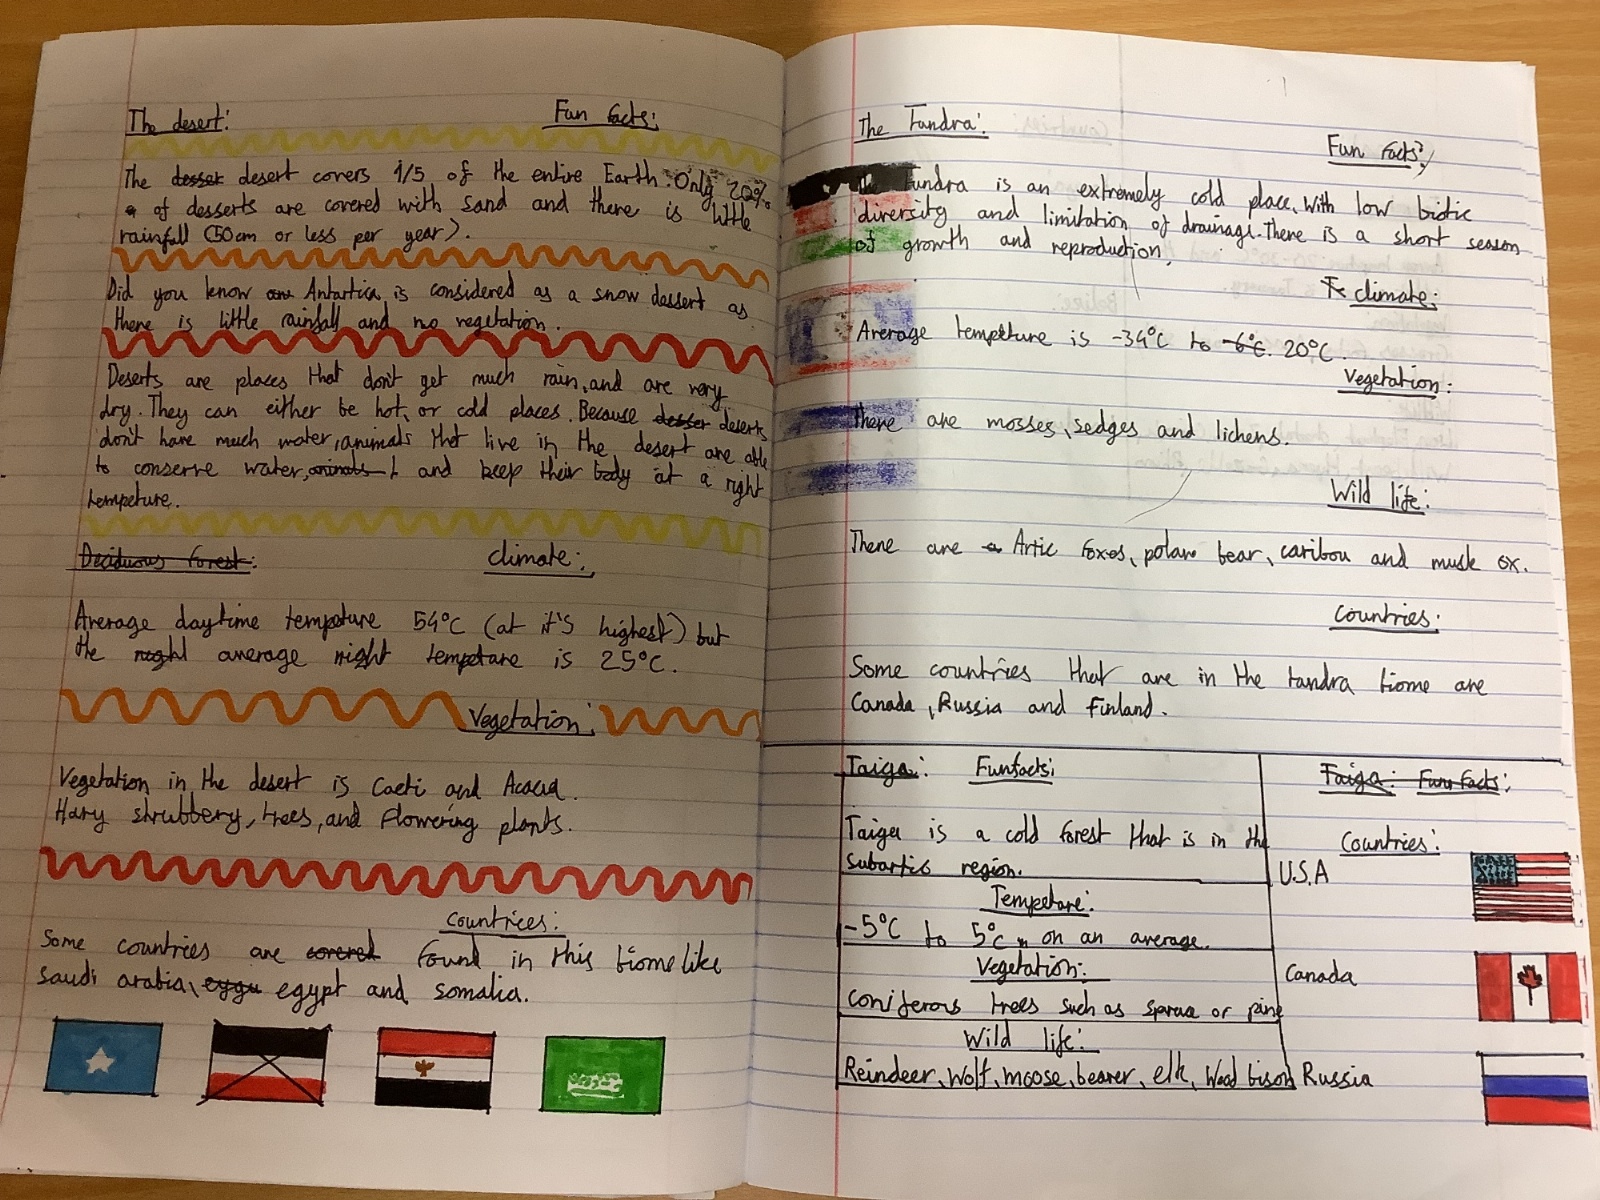 The desert: Fun facts:
The desser desert covers 1/5 of the entire Earth. Only 20%
of desserts are covered with sand and there is little
rainfall (50cm or less per year).
Did you know are Antartica is considered as a snow dessert as
there is little rainfall and no vegetation.
Deserts are places that don't get much rain, and are very
dry. They can either be hot, or cold places. Because desser deserts
don't have much water, animals that live in the desert are able
to conserve water, animals t and keep their body at a right
tempeture.
Deciduous forest: climate:
Average daytime tempeture 54°C (at it's highest) but
the night average night tempeture is 25°C.
Vegetation:
Vegetation in the desert is Cacti and Acacia.
Hary shrubbery, trees, and flowering plants.
Countrices:
Some countries are covered found in this biome like
Saudi arabia, eygu egypt and somalia.
The Tundra:
Fun facts:
The tundra is an extremely cold place, with low biotic
diversity and limitation of drainage. There is a short season
of growth and reproduction.
climate:
Average tempeture is -34°C to -6°C. 20°C.
Vegetation:
There are mosses, sedges and lichens.
Wild life:
There are a Artic foxes, polar bear, caribou and musk ox.
Countries:
Some countries that are in the tundra biome are
Canada, Russia and Finland.
Taiga: Funfacts:
Taiga is a cold forest that is in the
subartic region.
Tempeture:
-5°C to 5°C on an average.
Vegetation:
coniferous trees such as or pine
Wild life:
Reindeer, wolf, moose, bearer, elk, Wood bison
Taiga: Fun Facts:
Countries:
U.S.A
Canada
Russia